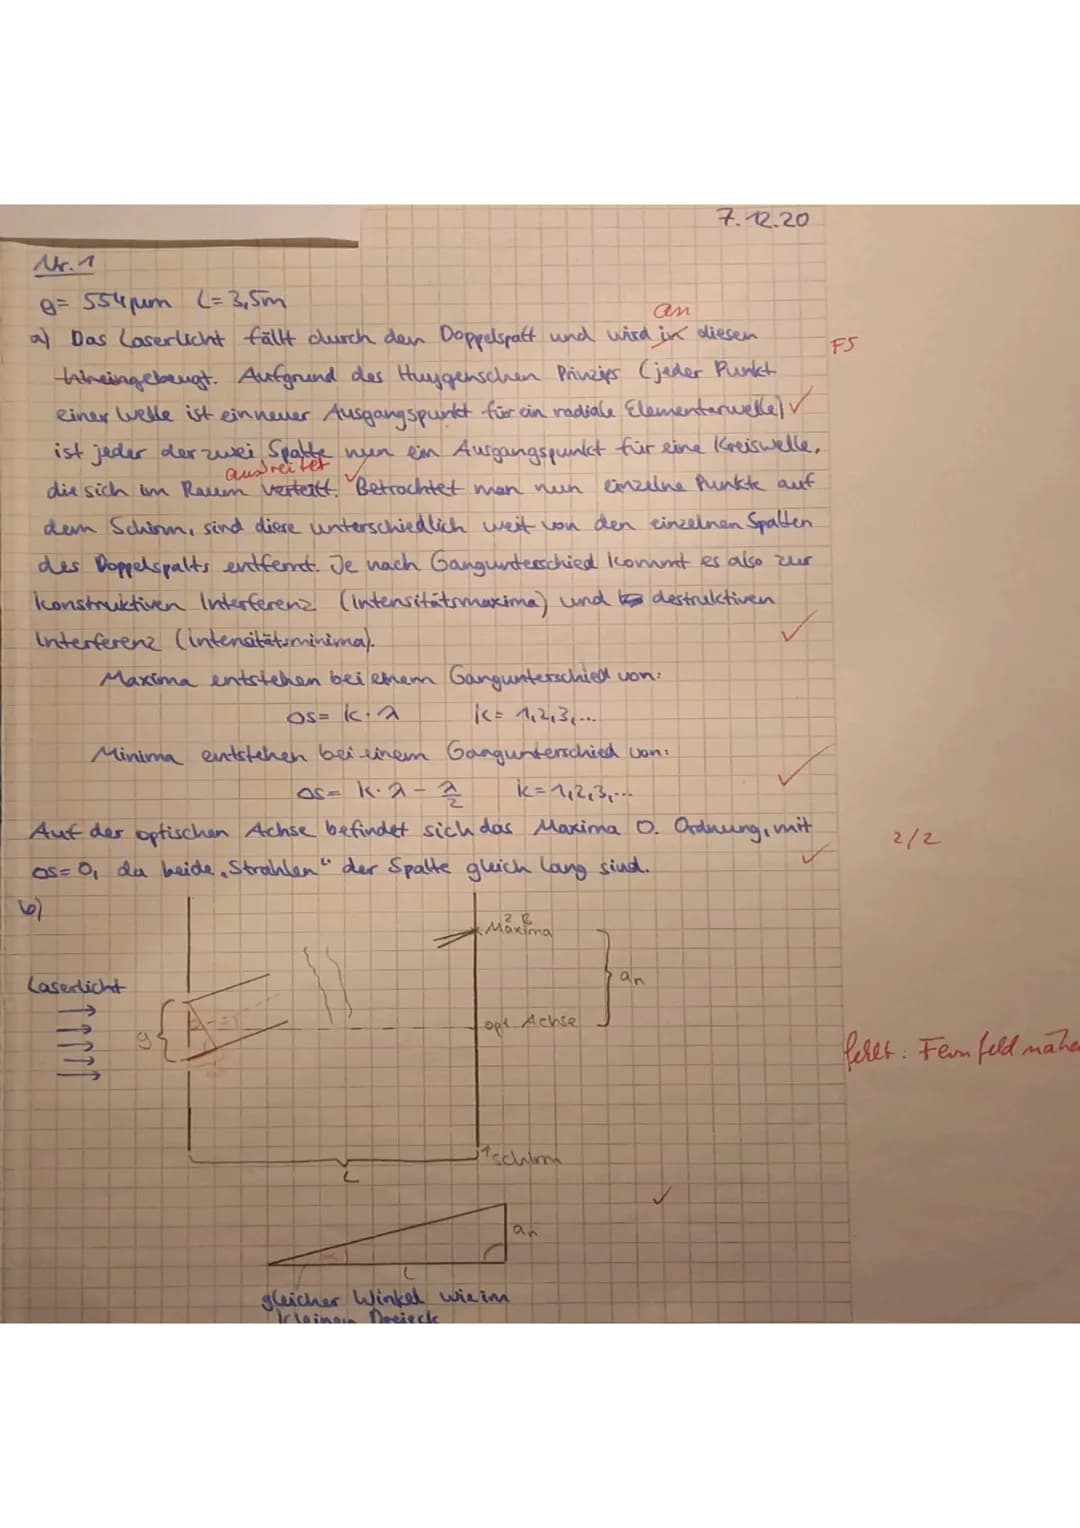 7.12.20
Nr. 1
g= 554µm L= 3,5m
an
a) Das Laserlicht fällt durch den Doppelspalt und wird in diesen
FS
hineingebeugt. Aufgrund des Huygenschen Prinzips (jeder Punkt
einer Welle ist ein neuer Ausgangspunkt für ein radiale Elementarwelle)
ist jeder der zwei Spalte nun ein Ausgangspunkt für eine Kreiswelle,
ausbreitet
die sich im Raum verteilt. Betrachtet man nun einzelne Punkte auf
dem Schirm, sind diese unterschiedlich weit von den einzelnen Spalten
des Doppelspalts entfernt. Je nach Gangunterschied kommt es also zur
konstruktiven Interferenz (Intensitätsmaxima) und destruktiven
Interferenz (intensitätsminima).
Maxima entstehen bei einem Gangunterschied von:
Δs= k·λ k= 1,2,3,...
Minima entstehen bei einem Gangunterschied von:
Δs= k·λ - λ/2 k=1,2,3,...
Auf der optischen Achse befindet sich das Maxima 0. Ordnung, mit
2/2
Δs= 0, da beide „Strahlen“ der Spalte gleich lang sind.
b)
Maxima
Laserlicht
an
g
opt. Achse
fehlt: Fernfeld nähe
Schirm
L
an
L
gleicher Winkel wie im
kleinen Dreieck